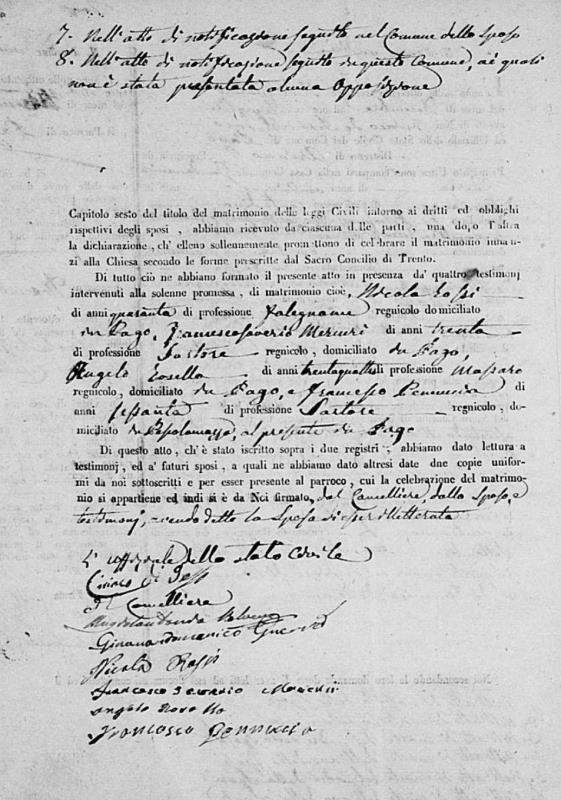 7. Nell'atto di notificazione seguito nel Comune dello Sposo
8. Nell'atto di notificazione seguito in questo Comune, ai quali
non è stata presentata alcuna Opposizione
Capitolo sesto del titolo del matrimonio delle leggi Civili intorno ai dritti ed obblighi
rispettivi degli sposi, abbiamo ricevuto da ciascuna delle parti, una dopo l'altra
la dichiarazione, ch' elleno sollennemente promettono di celebrare il matrimonio innan-
zi alla Chiesa secondo le forme prescritte dal Sacro Concilio di Trento.
Di tutto ciò ne abbiamo formato il presente atto in presenza da' quattro testimonj
intervenuti alla solenne promessa, di matrimonio cioè, Nicola Rossi
di anni quaranta di professione Falegname regnicolo domiciliato
in Pago, Francescosaverio Mercuri di anni trenta
di professione Sartore regnicolo, domiciliato in Pago,
Angelo di anni trentaquattro di professione Massaro
regnicolo, domiciliato in Pago, e Francesco Pennuccia di
anni sessanta di professione Sartore regnicolo, do-
miciliato in al presente in Pago
Di questo atto, ch'è stato iscritto sopra i due registri, abbiamo dato lettura a
testimonj, ed a' futuri sposi, a quali ne abbiamo dato altresì date due copie unifor-
mi da noi sottoscritti e per esser presente al parroco, cui la celebrazione del matrimo-
nio si appartiene ed indi si è da Noi firmato, dal Cancelliere, dallo Sposo, e
testimonj, avendo detto la Sposa di esser illetterata
L'uffiziale dello stato Civile
Il Cancelliere
Giovandomenico
Nicola Rossi
Francesco
Angelo
Francesco Pennuccia